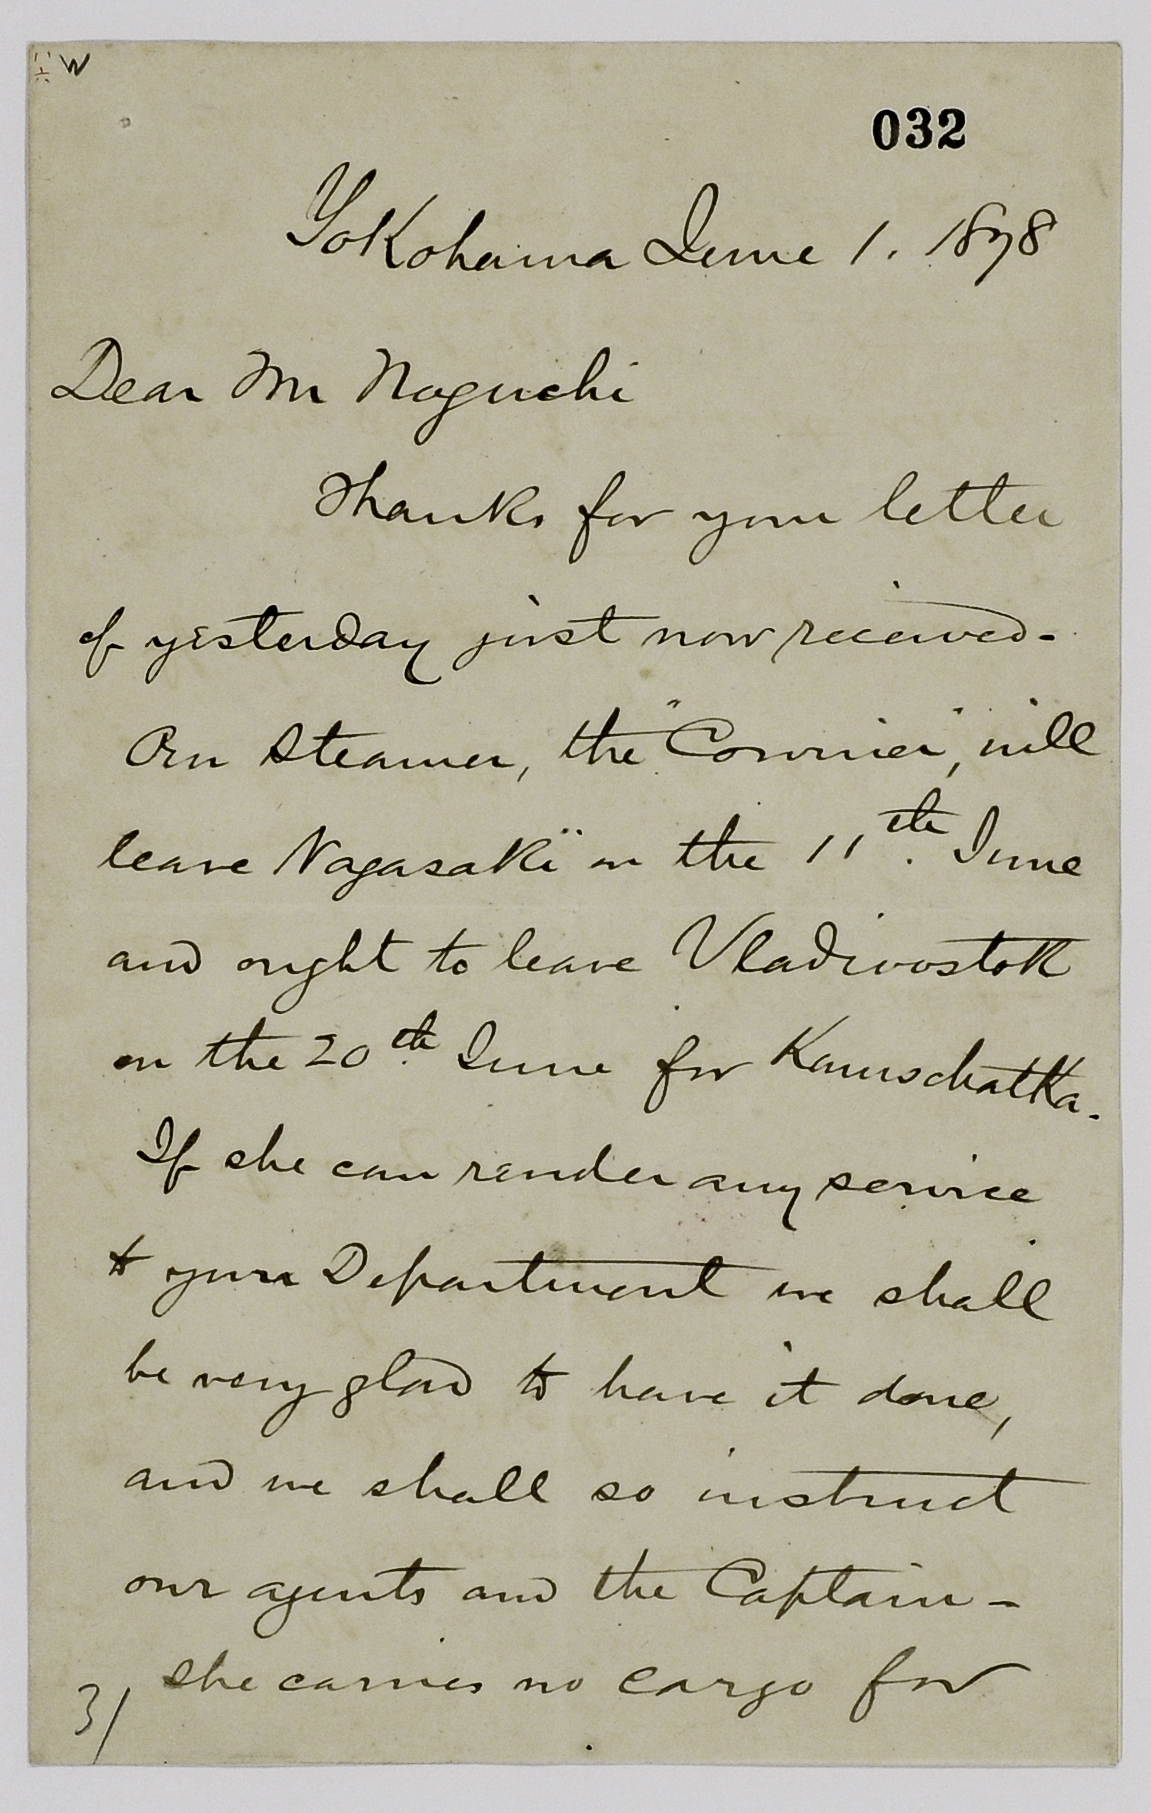 W
032
Yokohama June 1. 1878
Dear Mr Noguchi
Thanks for your letter
of yesterday just now received-
Our Steamer, the "Courrier", will
leave Nagasaki on the 11th. June
and ought to leave Vladivostok
on the 20th. June for Kamschatka.
If she can render any service
to your Department we shall
be very glad to have it done,
and we shall so instruct
our agents and the Captain-
she carries no cargo for
31